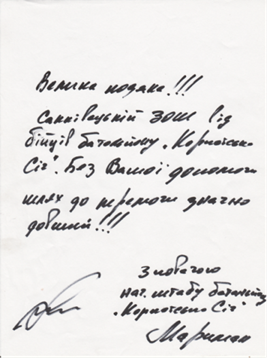 Велика подяка!!!
Санківецькій ЗОШ від
бійців батальйону „Карпатська
Січ". Без Вашої допомоги
шлях до перемоги значно
довший!!!
З повагою
нач. штабу батальйону
„Карпатська Січ"